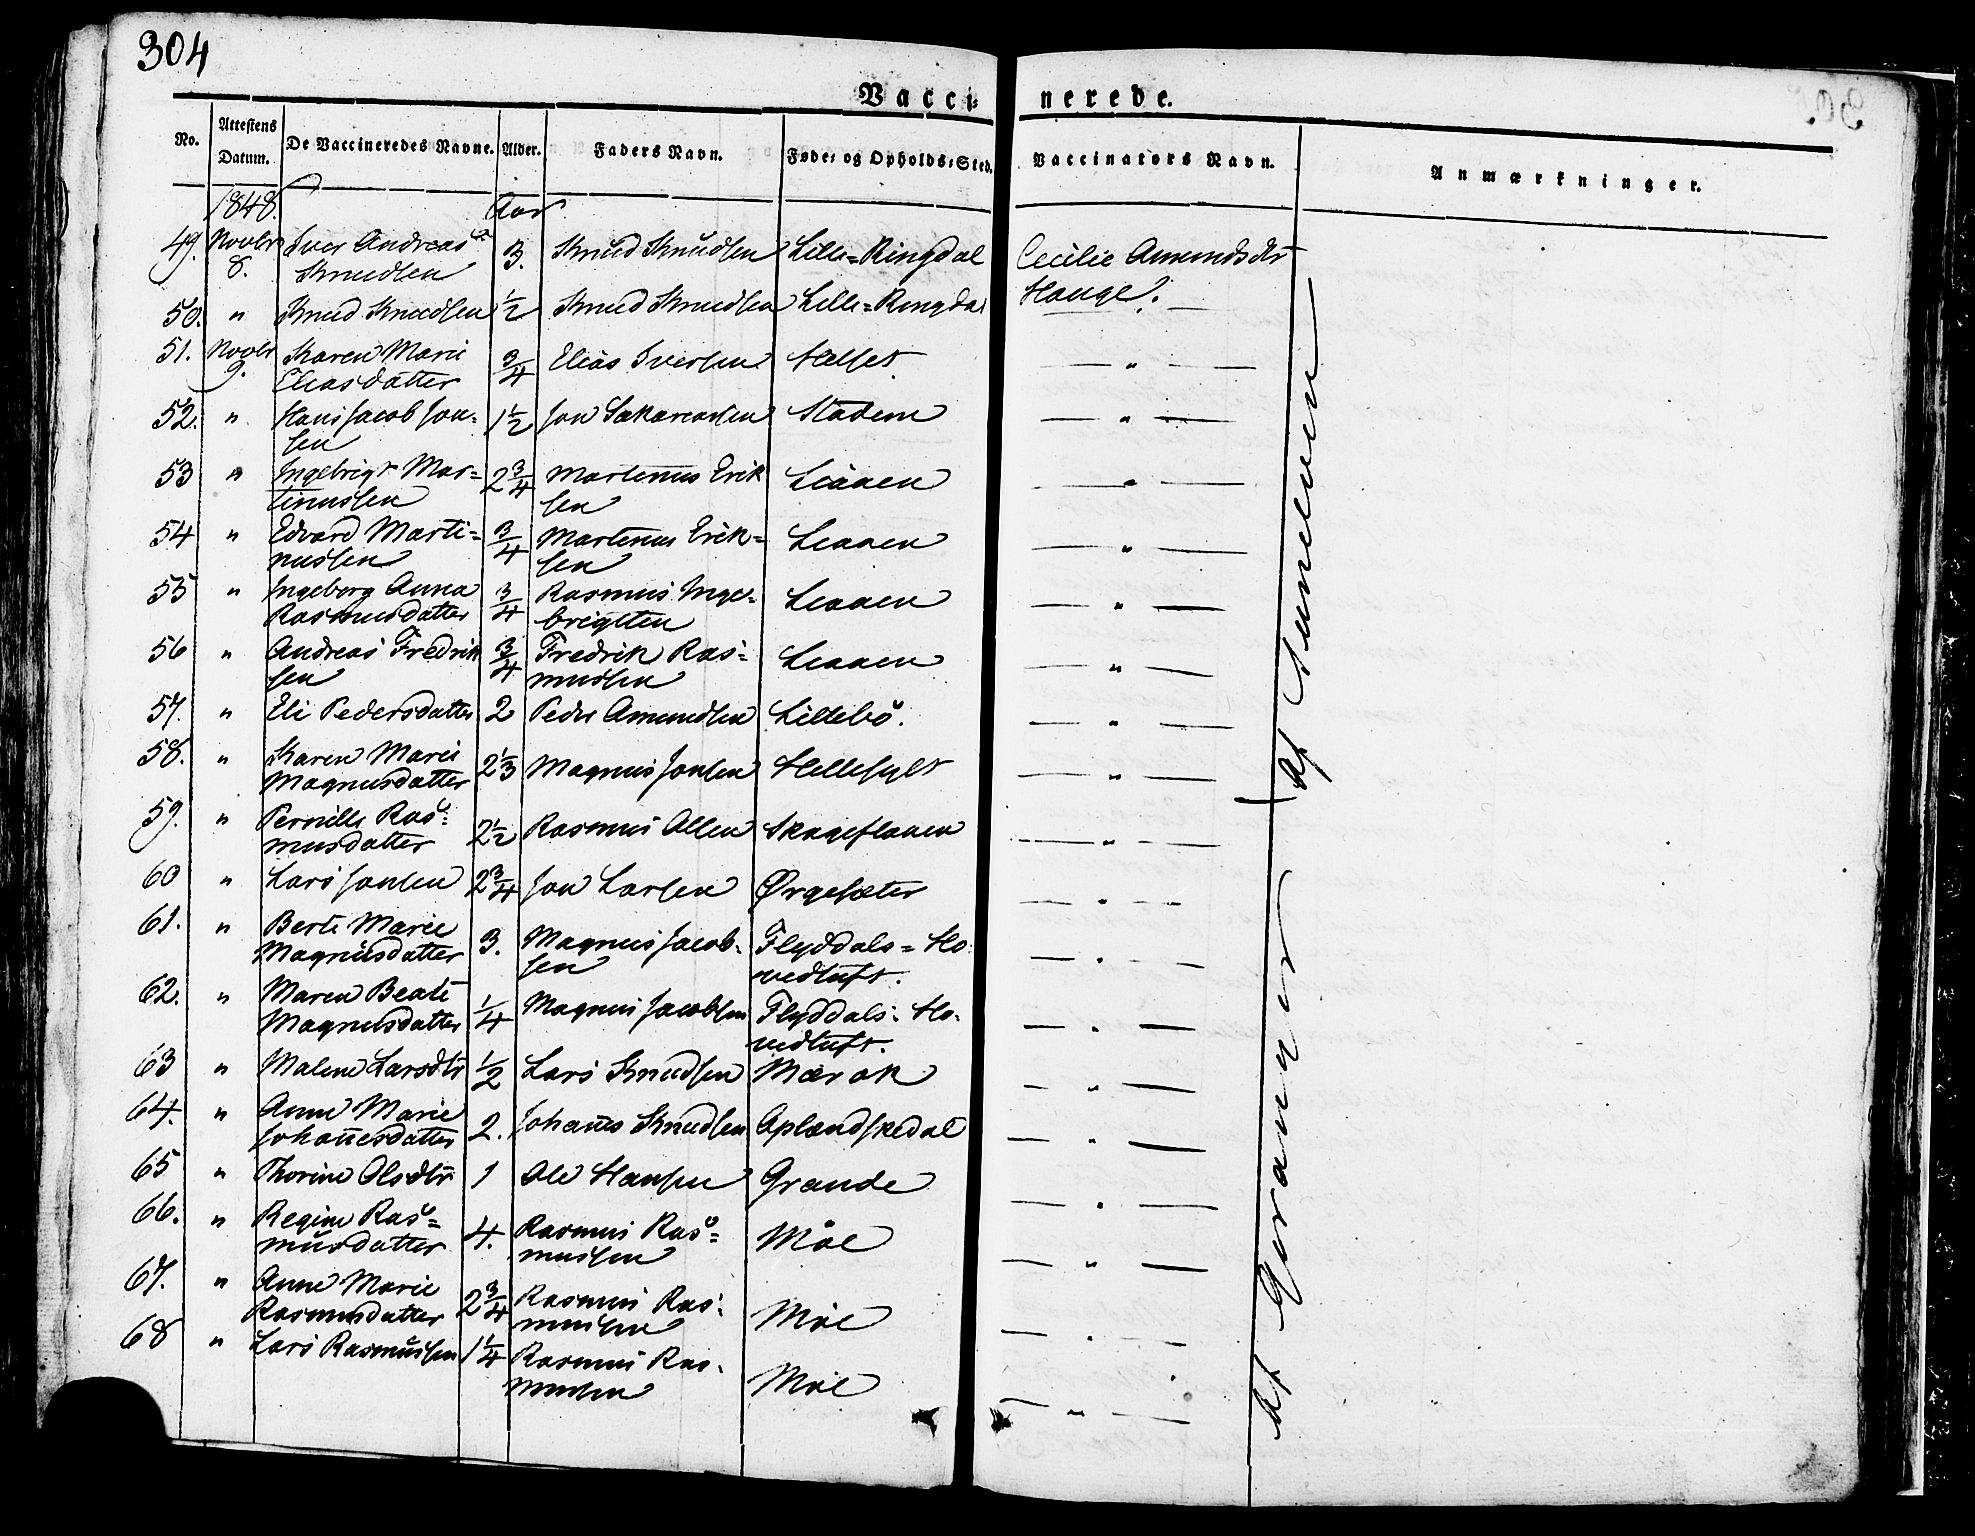 304
Vaccinerede.
No. Attestens Datum. De Vaccineredes Navne. Alder. Faders Navn. Føde- og Opholds-Sted. Vaccinators Navn. Anmærkninger.
1848. Aar
49. Novbr 8. Iver Andreas Knudsen 3. Knud Knudsen Lille-Ringdal Cecilie Amundsdtr Hauge.
50. " Knud Knudsen 1/2 Knud Knudsen Lille-Ringdal — " —
51. Novbr 9. Karen Marie Eliasdatter 3/4 Elias Iversen Helset — " —
52. " Hans Jacob Jonsen 1 1/2 Jon Sakariasen Stadem — " —
53 " Ingebrigt Martinussen 2 3/4 Martenus Eriksen Liaaen — " —
54 " Edvard Martinussen 3/4 Martenus Eriksen Liaaen — " —
55 " Ingeborg Anna Rasmusdatter 3/4 Rasmus Ingebrigtsen Liaaen — " —
56 " Andreas Fredriksen 3/4 Fredrik Rasmussen Liaaen — " —
57. " Eli Pedersdatter 2 Peder Amundsen Lillebö. — " —
58. " Karen Marie Magnusdatter 2 1/3 Magnus Jonsen Hellesylt — " —
59. " Pernille Rasmusdatter 2 1/2 Rasmus Olsen Skageflaaen — " —
60 " Lars Jonsen 2 3/4 Jon Larsen Ørgesæter — " —
61. " Berte Marie Magnusdatter 3. Magnus Jacobsen Flyddals-Hovedtuft. — " —
62. " Maren Beate Magnusdatter 1/4 Magnus Jacobsen Flyddals-Hovedtuft. — " —
63 " Malene Larsdtr 1/2 Lars Knudsen Mærok — " —
64. " Anne Marie Johannesdatter 2. Johannes Knudsen Oplændskedal — " —
65 " Thorine Olsdtr 1 Ole Hansen Grande — " —
66. " Regine Rasmusdatter 4. Rasmus Rasmussen Möe — " —
67. " Anne Marie Rasmusdatter 2 3/4 Rasmus Rasmussen Möe — " —
68 " Lars Rasmussen 1 1/4 Rasmus Rasmussen Möe — " —
af Sunelven
af Geranger